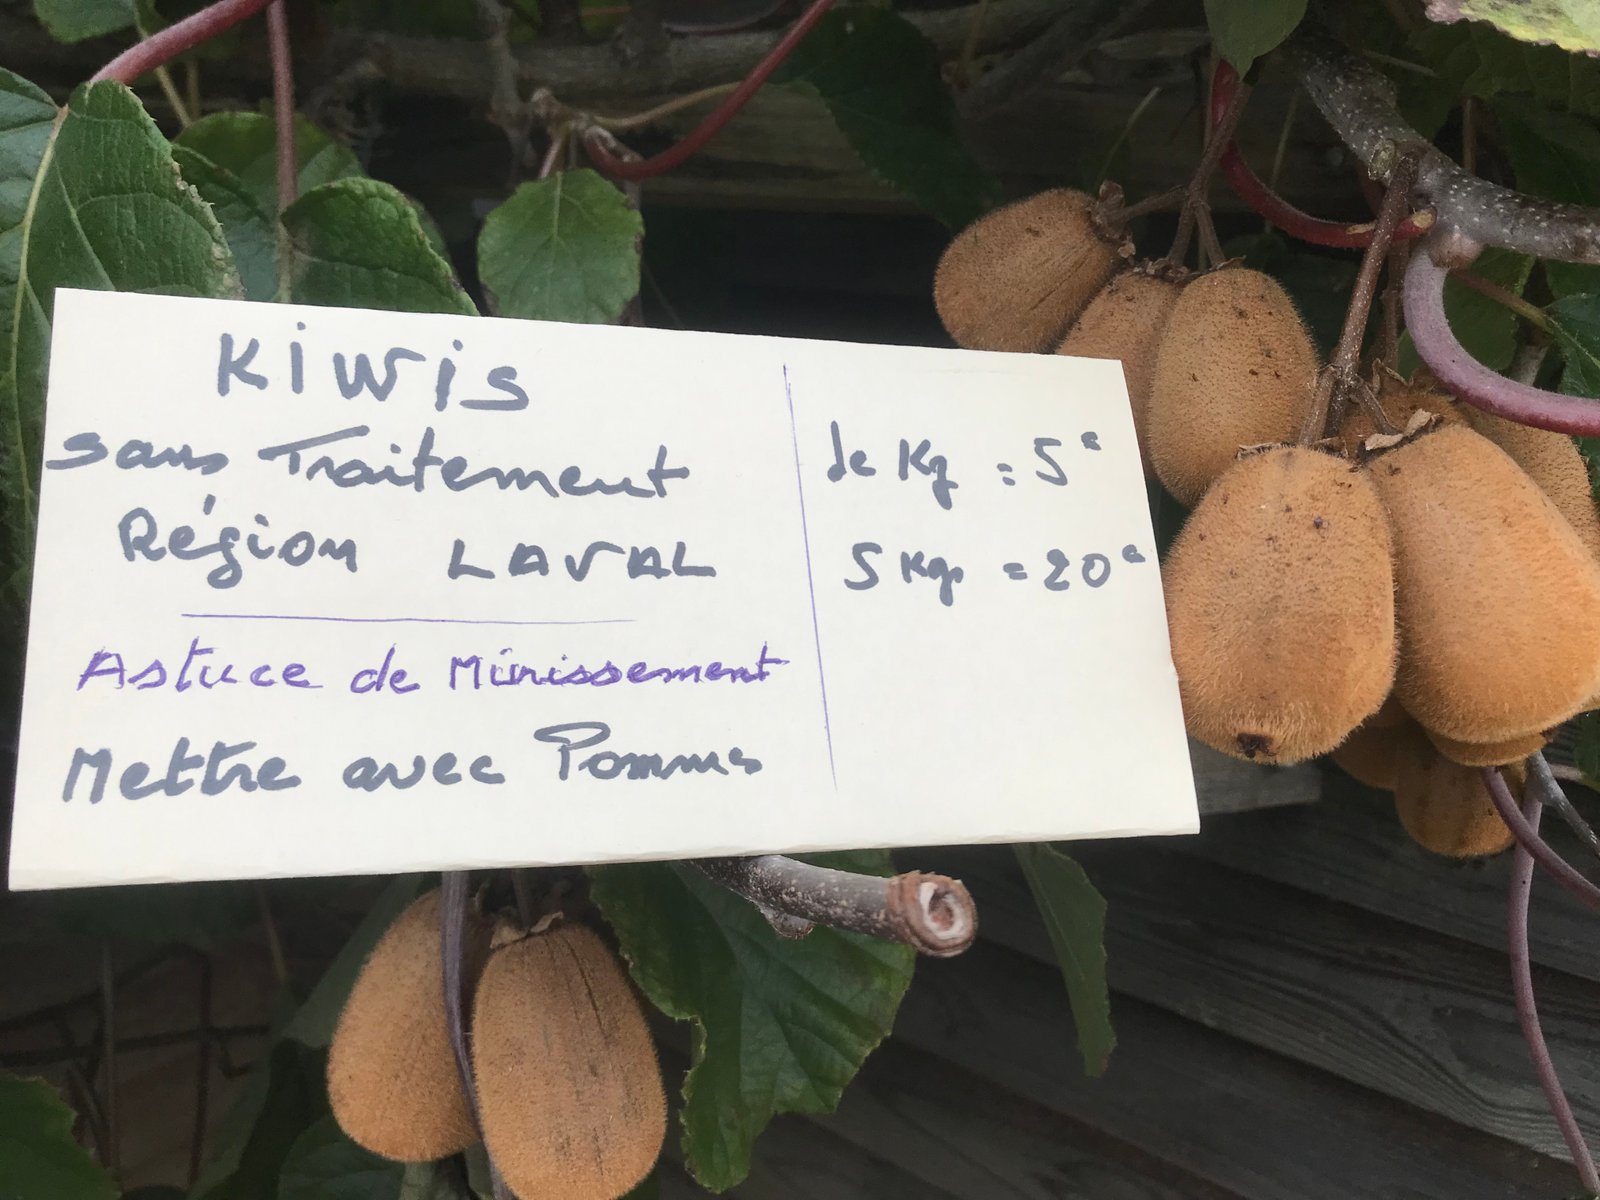 Kiwis
sans Traitement
Région LAVAL
Astuce de Mûrissement
Mettre avec Pommes
le Kg = 5€
5 Kgs = 20€